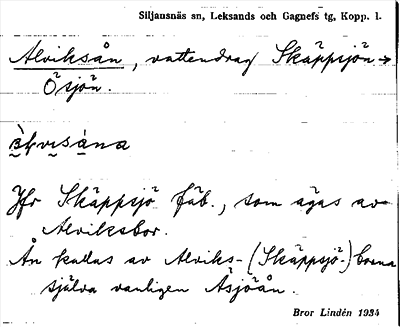 Siljansnäs sn, Leksands och Gagnefs tg, Kopp. l.
Alviksån, vattendrag Skäppsjön →
Ösjön.
Jfr Skäppsjö fäb., som ägas av
Alviksbor.
Ån kallas av Alviks- (Skäppsjö-) borna
själva vanligen Åsjöån.
Bror Lindén 1934